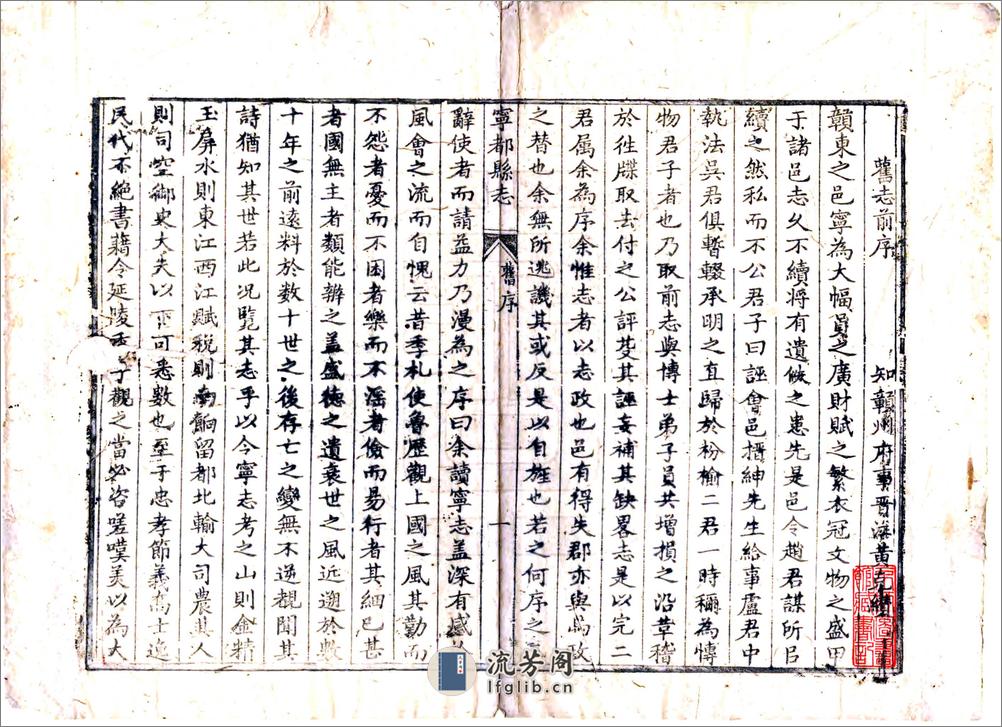 舊志前序
知贛州府事晉江黃克纘
贛東之邑寧為大幅員之廣財賦之繁衣冠文物之盛甲
于諸邑志久不續將有遺佚之患先是邑令趙君謀所以
續之然私而不公君子曰誣會邑搢紳先生給事盧君中
執法吳君俱暫輟承明之直歸於枌榆二君一時稱為博
物君子者也乃取前志與博士弟子員共增損之沿革稽
於往牒取去付之公評芟其誣妄補其缺畧志是以完二
君屬余為序余惟志者以志政也邑有得失郡亦與為政
之替也余無所逃譏其或反是以自旌也若之何序之
寧都縣志
舊序
一
辭使者而請益力乃漫為之序曰余讀寧志盖深有感
風會之流而自愧云昔季札使魯歷觀上國之風其勤而
不怨者憂而不困者樂而不淫者儉而易行者其細已甚
者國無主者類能辨之盖盛德之遺衰世之風近遡於數
十年之前遠料於數十世之後存亡之變無不逆覩聞其
詩猶知其世若此况覽其志乎以今寧志考之山則金精
玉屏水則東江西江賦稅則南餉留都北輸大司農其人
則司空御史大夫以下可悉數也至于忠孝節義高士逸
民代不絕書藉令延陵季子觀之當必咨嗟嘆美以為大
流芳阁
lfglib.cn